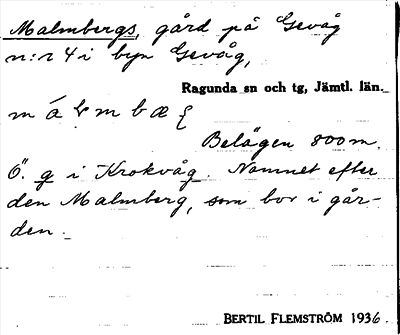 Malmbergs, gård på Gevåg
n:r 4 i byn Gevåg,
Ragunda sn och tg, Jämtl. län.
Belägen 800 m.
Ö. g i Krokvåg. Namnet efter
den Malmberg, som bor i går-
den.
BERTIL FLEMSTRÖM 1936.